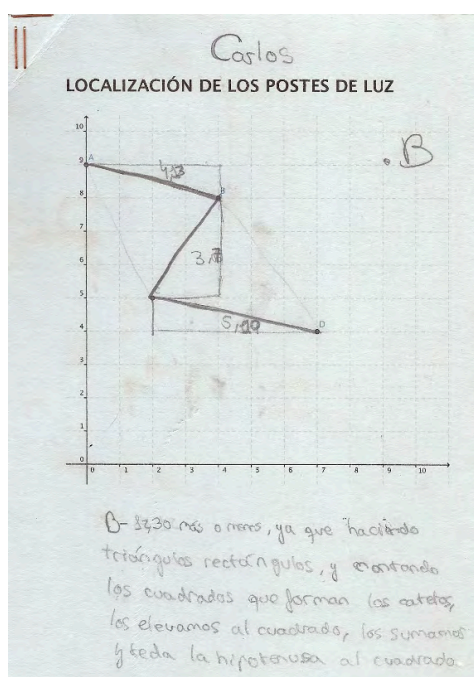 Carlos
LOCALIZACIÓN DE LOS POSTES DE LUZ
10
9
8
7
6
5
4
3
2
1
0
A
B
4,13
B
3,
5,10
D
0 1 2 3 4 5 6 7 8 9 10
B- 12,30 más o menos, ya que haciendo
triángulos rectángulos, y contando
los cuadrados que forman los catetos,
los elevamos al cuadrado, los sumamos
y te da la hipotenusa al cuadrado.